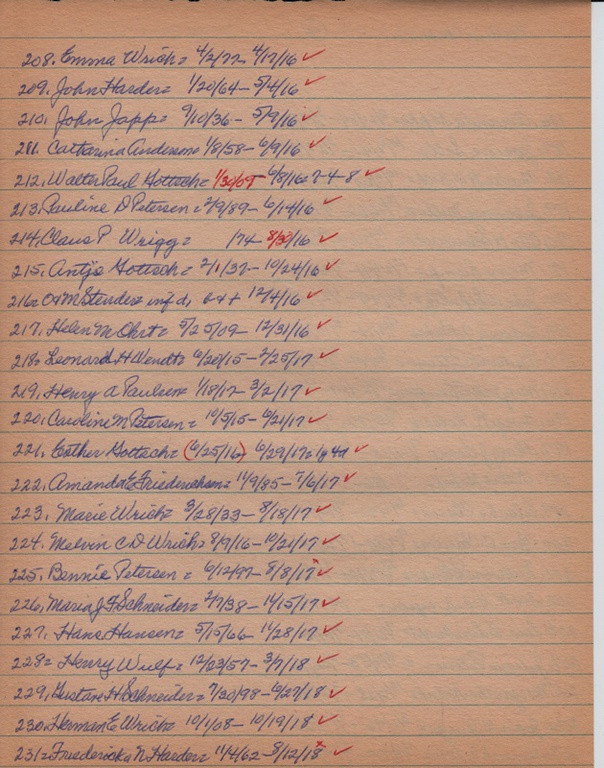 208. Emma Wrich = 4/2/72 - 4/17/16 ✓
209. John Harder = 1/20/64 - 5/4/16 ✓
210. John Japp = 9/10/36 - 5/9/16 ✓
211. Catharina Anderson = 1/8/58 - 6/9/16 ✓
212. Walter Paul Gottsch = 1/30/09 - 6/8/16 = 7-4-8 ✓
213. Pauline D Petersen = 2/9/89 - 6/14/16 ✓
214. Claus P Wrigg = /74 - 8/30/16 ✓
215. Antje Gottsch = 2/1/37 - 10/24/16 ✓
216 = O + M Stender = inf d, b + + 12/4/16 ✓
217. Helen M Ohrt = 5/25/09 - 12/31/16 ✓
218 = Leonard H Wendt = 6/20/15 - 2/25/17 ✓
219. Henry A Paulsen = 1/18/17 - 3/2/17 ✓
220. Caroline M Petersen = 10/5/15 - 6/21/17 ✓
221. Esther Gottsch = (6/25/16) 6/29/17 = 1y 4d ✓
222. Amanda E Friederichsen = 11/9/85 - 7/6/17 ✓
223. Marie Wrich = 3/28/33 - 8/18/17 ✓
224. Melvin C D Wrich = 8/9/16 - 10/21/17 ✓
225. Bennie Petersen = 6/12/97 - 8/8/17 ✓
226. Maria J F Schneider = 2/7/38 - 11/15/17 ✓
227. Hans Hansen = 5/15/66 - 11/28/17 ✓
228 = Henry Wulf = 12/23/57 - 3/7/18 ✓
229. Gustave H Schneider = 7/30/98 - 6/27/18 ✓
230. Herman E Wrich = 10/1/08 - 10/19/18 ✓
231 = Friedericka N Harder = 11/4/62 - 8/12/18 ✓